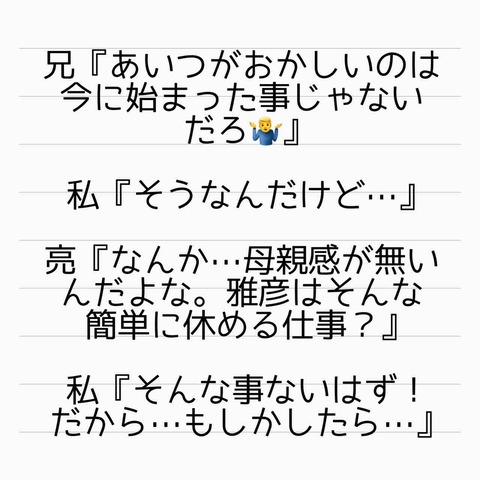 兄『あいつがおかしいのは
今に始まった事じゃない
だろ🤷‍♂️』
私『そうなんだけど…』
亮『なんか…母親感が無い
んだよな。雅彦はそんな
簡単に休める仕事？』
私『そんな事ないはず！
だから…もしかしたら…』